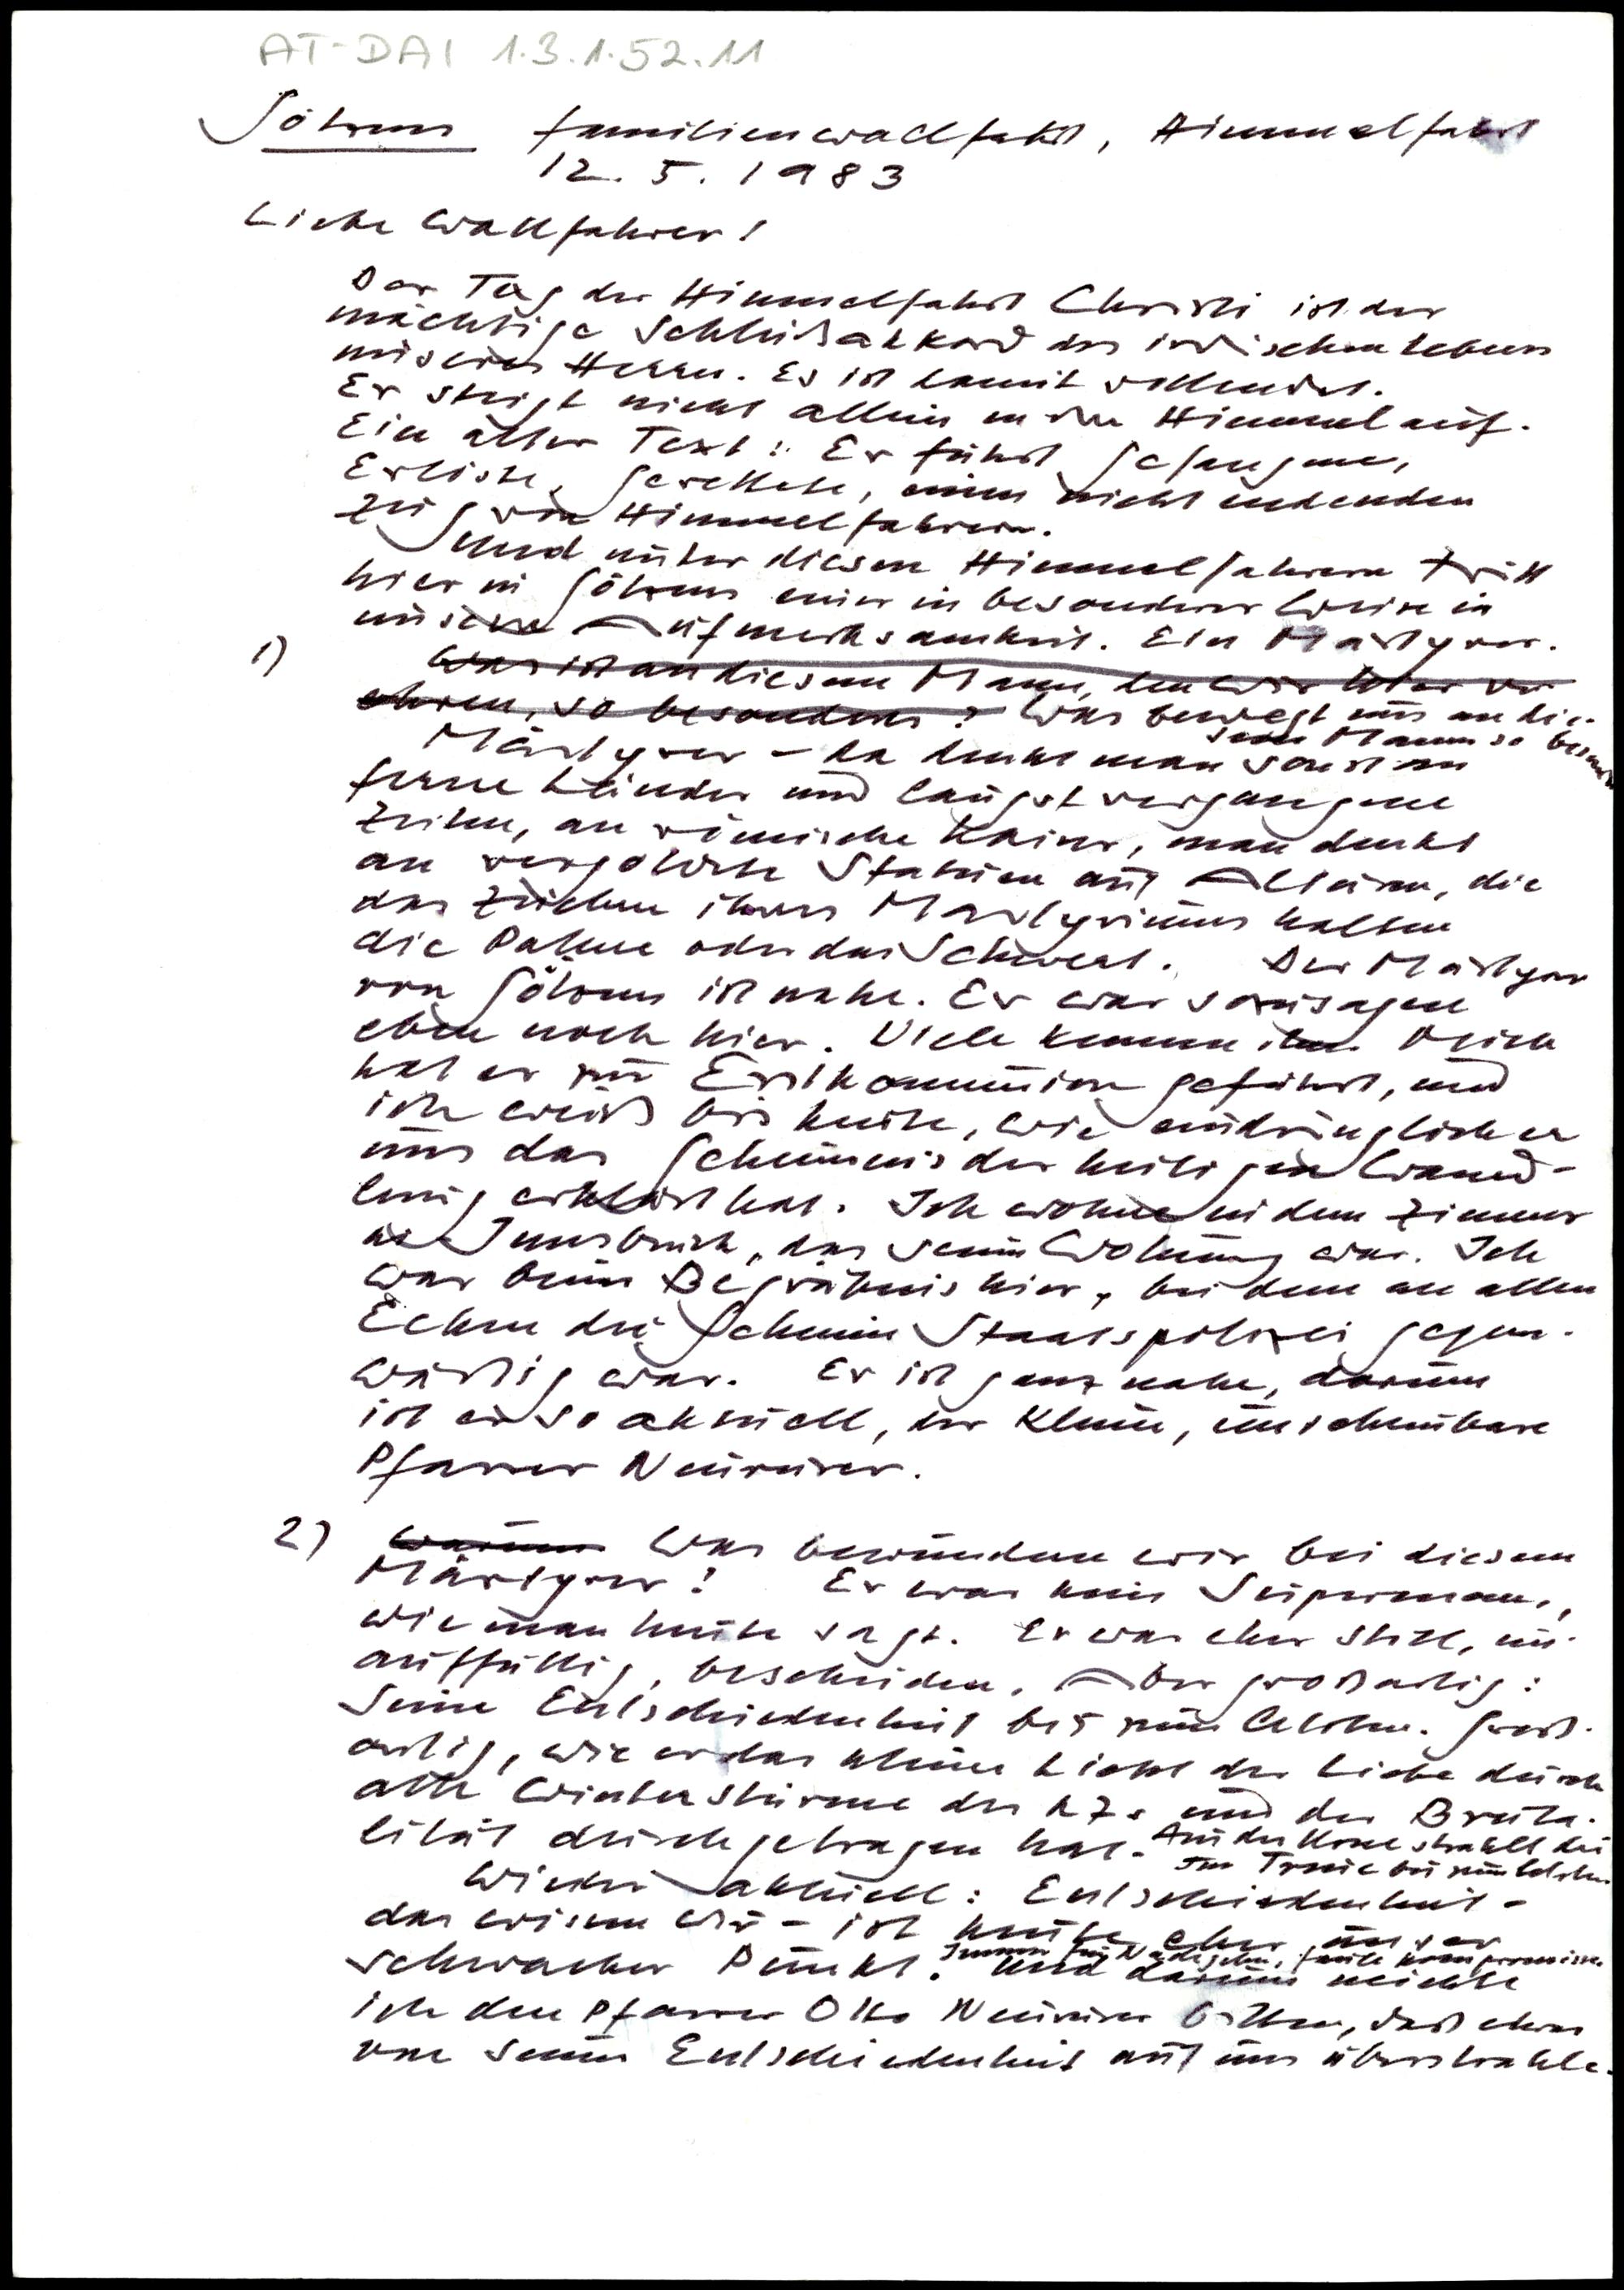 AT-DAI 1.3.1.52.11
Götzens Familienwallfahrt, Himmelfahrt
12. 5. 1983
Liebe Wallfahrer!
Der Tag der Himmelfahrt Christi ist der
mächtige Schlußakkord des irdischen Lebens
unseres Herrn. Es ist damit vollendet.
Er steigt nicht allein in den Himmel auf.
Ein alter Text: Er führt Gefangene,
Erlöste, Gerettete, einen nicht endenden
Zug von Himmelfahrern.
Und unter diesen Himmelfahrern tritt
hier in Götzens einer in besonderer Weise in
unsere Aufmerksamkeit. Ein Märtyrer.
1) Was ist an diesem Mann, den wir hier ver
ehren, so besonders? Was bewegt uns an die-
sem Mann so besonders
Märtyrer - da denkt man sonst an
ferne Länder und längst vergangene
Zeiten, an römische Kaiser, man denkt
an vergoldete Statuen auf Altären, die
das Zeichen ihres Martyriums halten
die Palme oder das Schwert. Der Märtyrer
von Götzens ist nahe. Er war sozusagen
eben noch hier. Viele kennen ihn. Mich
hat er zur Erstkommunion geführt, und
ich weiß bis heute, wie eindringlich er
uns das Geheimnis der heiligen Wand-
lung erklärt hat. Ich wohne in dem Zimmer
in Innsbruck, das seine Wohnung war. Ich
war beim Begräbnis hier, bei dem an allen
Ecken die Geheime Staatspolizei gegen-
wärtig war. Er ist ganz nahe, darum
ist er so aktuell, der kleine, unscheinbare
Pfarrer Neururer.
2) Warum Was bewundern wir bei diesem
Märtyrer? Er war kein Superman,
wie man heute sagt. Er war eher still, un-
auffällig, bescheiden. Aber großartig:
Seine Entschiedenheit bis zum Letzten. Groß-
artig, wie er das kleine Licht der Liebe durch
alle Winterstürme des KZs und der Bruta-
lität durchgetragen hat. An der Krone strahlt die
Treue bis zum Letzten.
Wieder aktuell: Entschiedenheit -
das wissen wir - ist heute eher unser
schwacher Punkt. Immer Nachgeben, faule Kompromisse.
Und darum möchte
ich den Pfarrer Otto Neururer bitten, daß etwas
von seiner Entschiedenheit auf uns überstrahle.